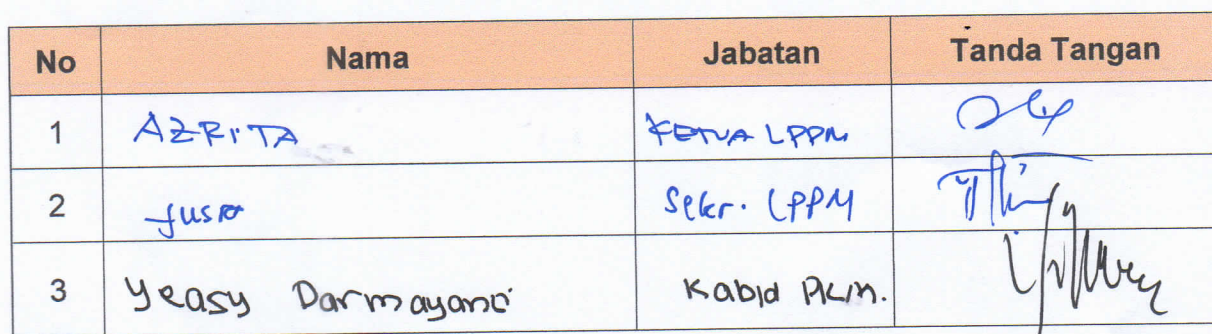 No Nama Jabatan Tanda Tangan
1 AZRITA KETUA LPPM
2 Yusra Sekr. LPPM
3 Yeasy Darmayanti Kabid PKM.